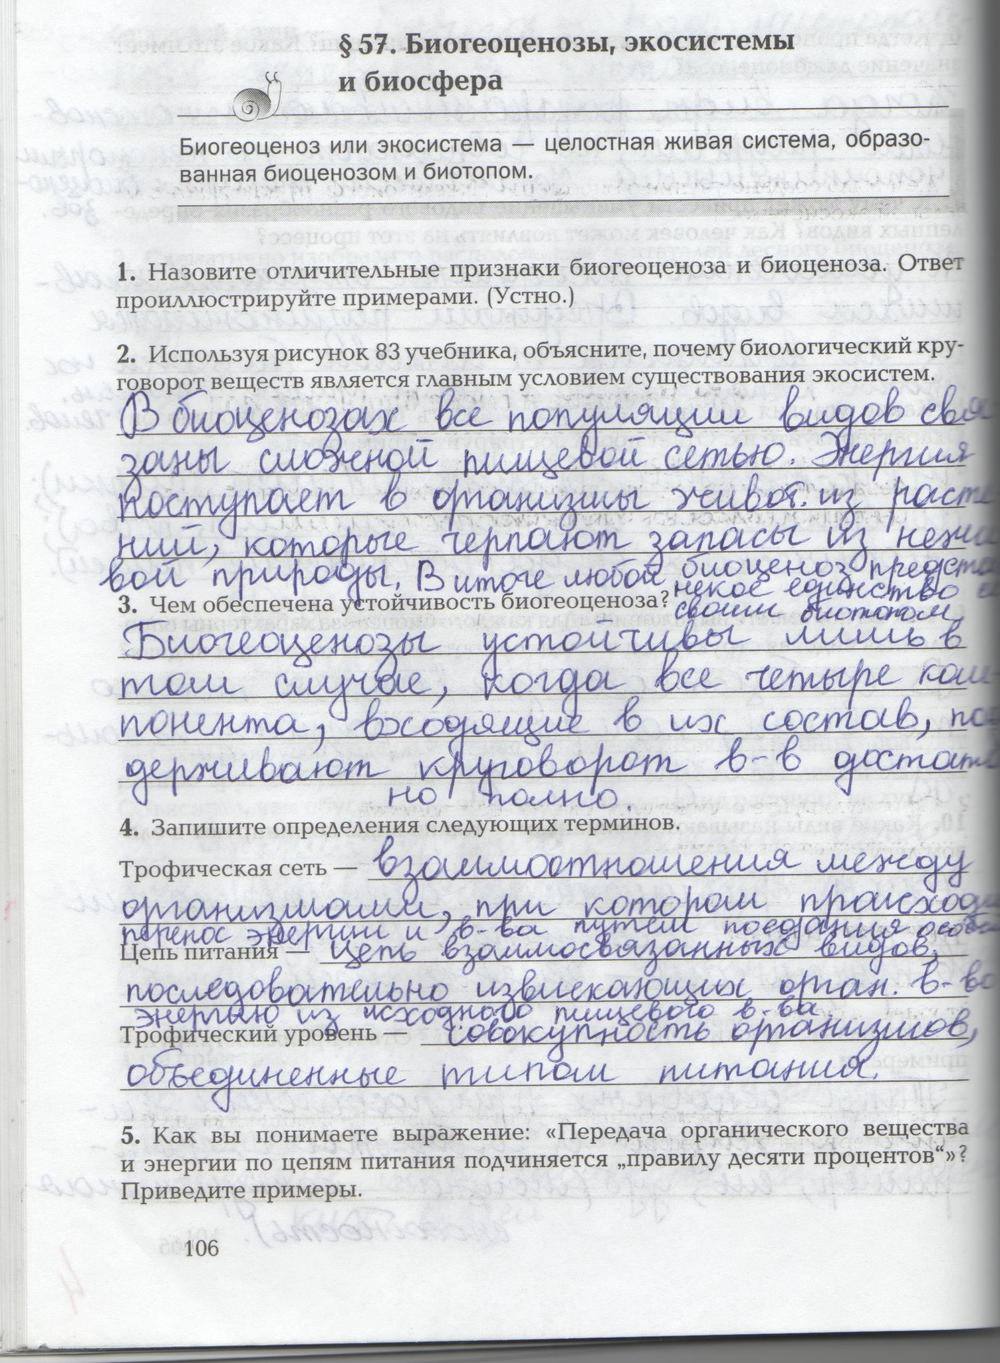 § 57. Биогеоценозы, экосистемы
и биосфера
Биогеоценоз или экосистема — целостная живая система, образо-
ванная биоценозом и биотопом.
1. Назовите отличительные признаки биогеоценоза и биоценоза. Ответ
проиллюстрируйте примерами. (Устно.)
2. Используя рисунок 83 учебника, объясните, почему биологический кру-
говорот веществ является главным условием существования экосистем.
В биоценозах все популяции видов свя
заны сложной пищевой сетью. Энергия
поступает в организмы живот. из расте
ний, которые черпают запасы из нежи
вой природы. В итоге любой биоценоз предста
некое единство с
своим биотопом
3. Чем обеспечена устойчивость биогеоценоза?
Биогеоценозы устойчивы лишь в
том случае, когда все четыре ком-
понента, входящие в их состав, под
держивают круговорот в-в достат
но полно.
4. Запишите определения следующих терминов.
Трофическая сеть — взаимоотношения между
организмами, при котором происходи
перенос энергии и в-ва путём поедания особи
Цепь питания — цепь взаимосвязанных видов,
последовательно извлекающих орган. в-во
энергию из исходного пищевого в-ва.
Трофический уровень — совокупность организмов,
объединенные типом питания.
5. Как вы понимаете выражение: «Передача органического вещества
и энергии по цепям питания подчиняется „правилу десяти процентов“»?
Приведите примеры.
106